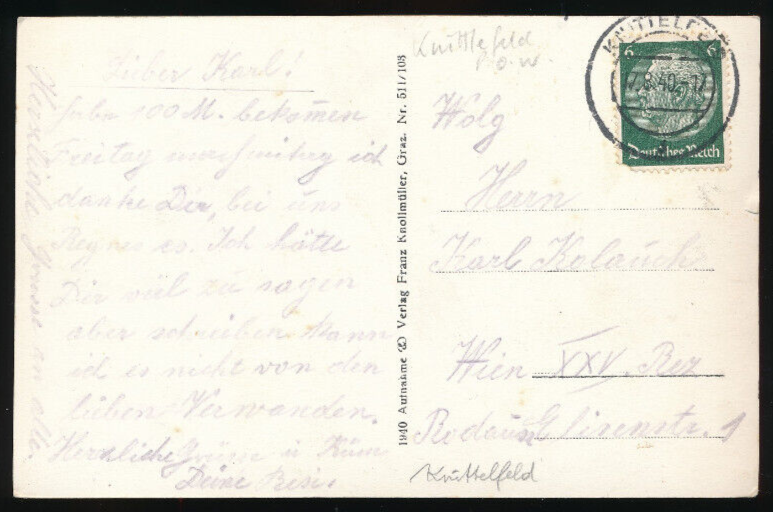 Lieber Karl!
habe 100 M. bekommen
Freitag nachmittag ich
danke Dir, bei uns
Regnes es. Ich hätte
Dir viel zu sagen
aber schreiben kann
ich es nicht von den
lieben Verwanden.
Herzliche Grüsse u Küsse
Deine Resi.
Herzliche Grüsse an alle.
1940 Aufnahme Verlag Franz Knollmüller, Graz. Nr. 511/103
Knittelfeld
o. W.
KNITTELFELD
8.40.-17
6 6
Deutsches Reich
Herrn
Karl Kolauch
Wien XXV. Bez
Rodaun Elisenstr. 1
Knittelfeld